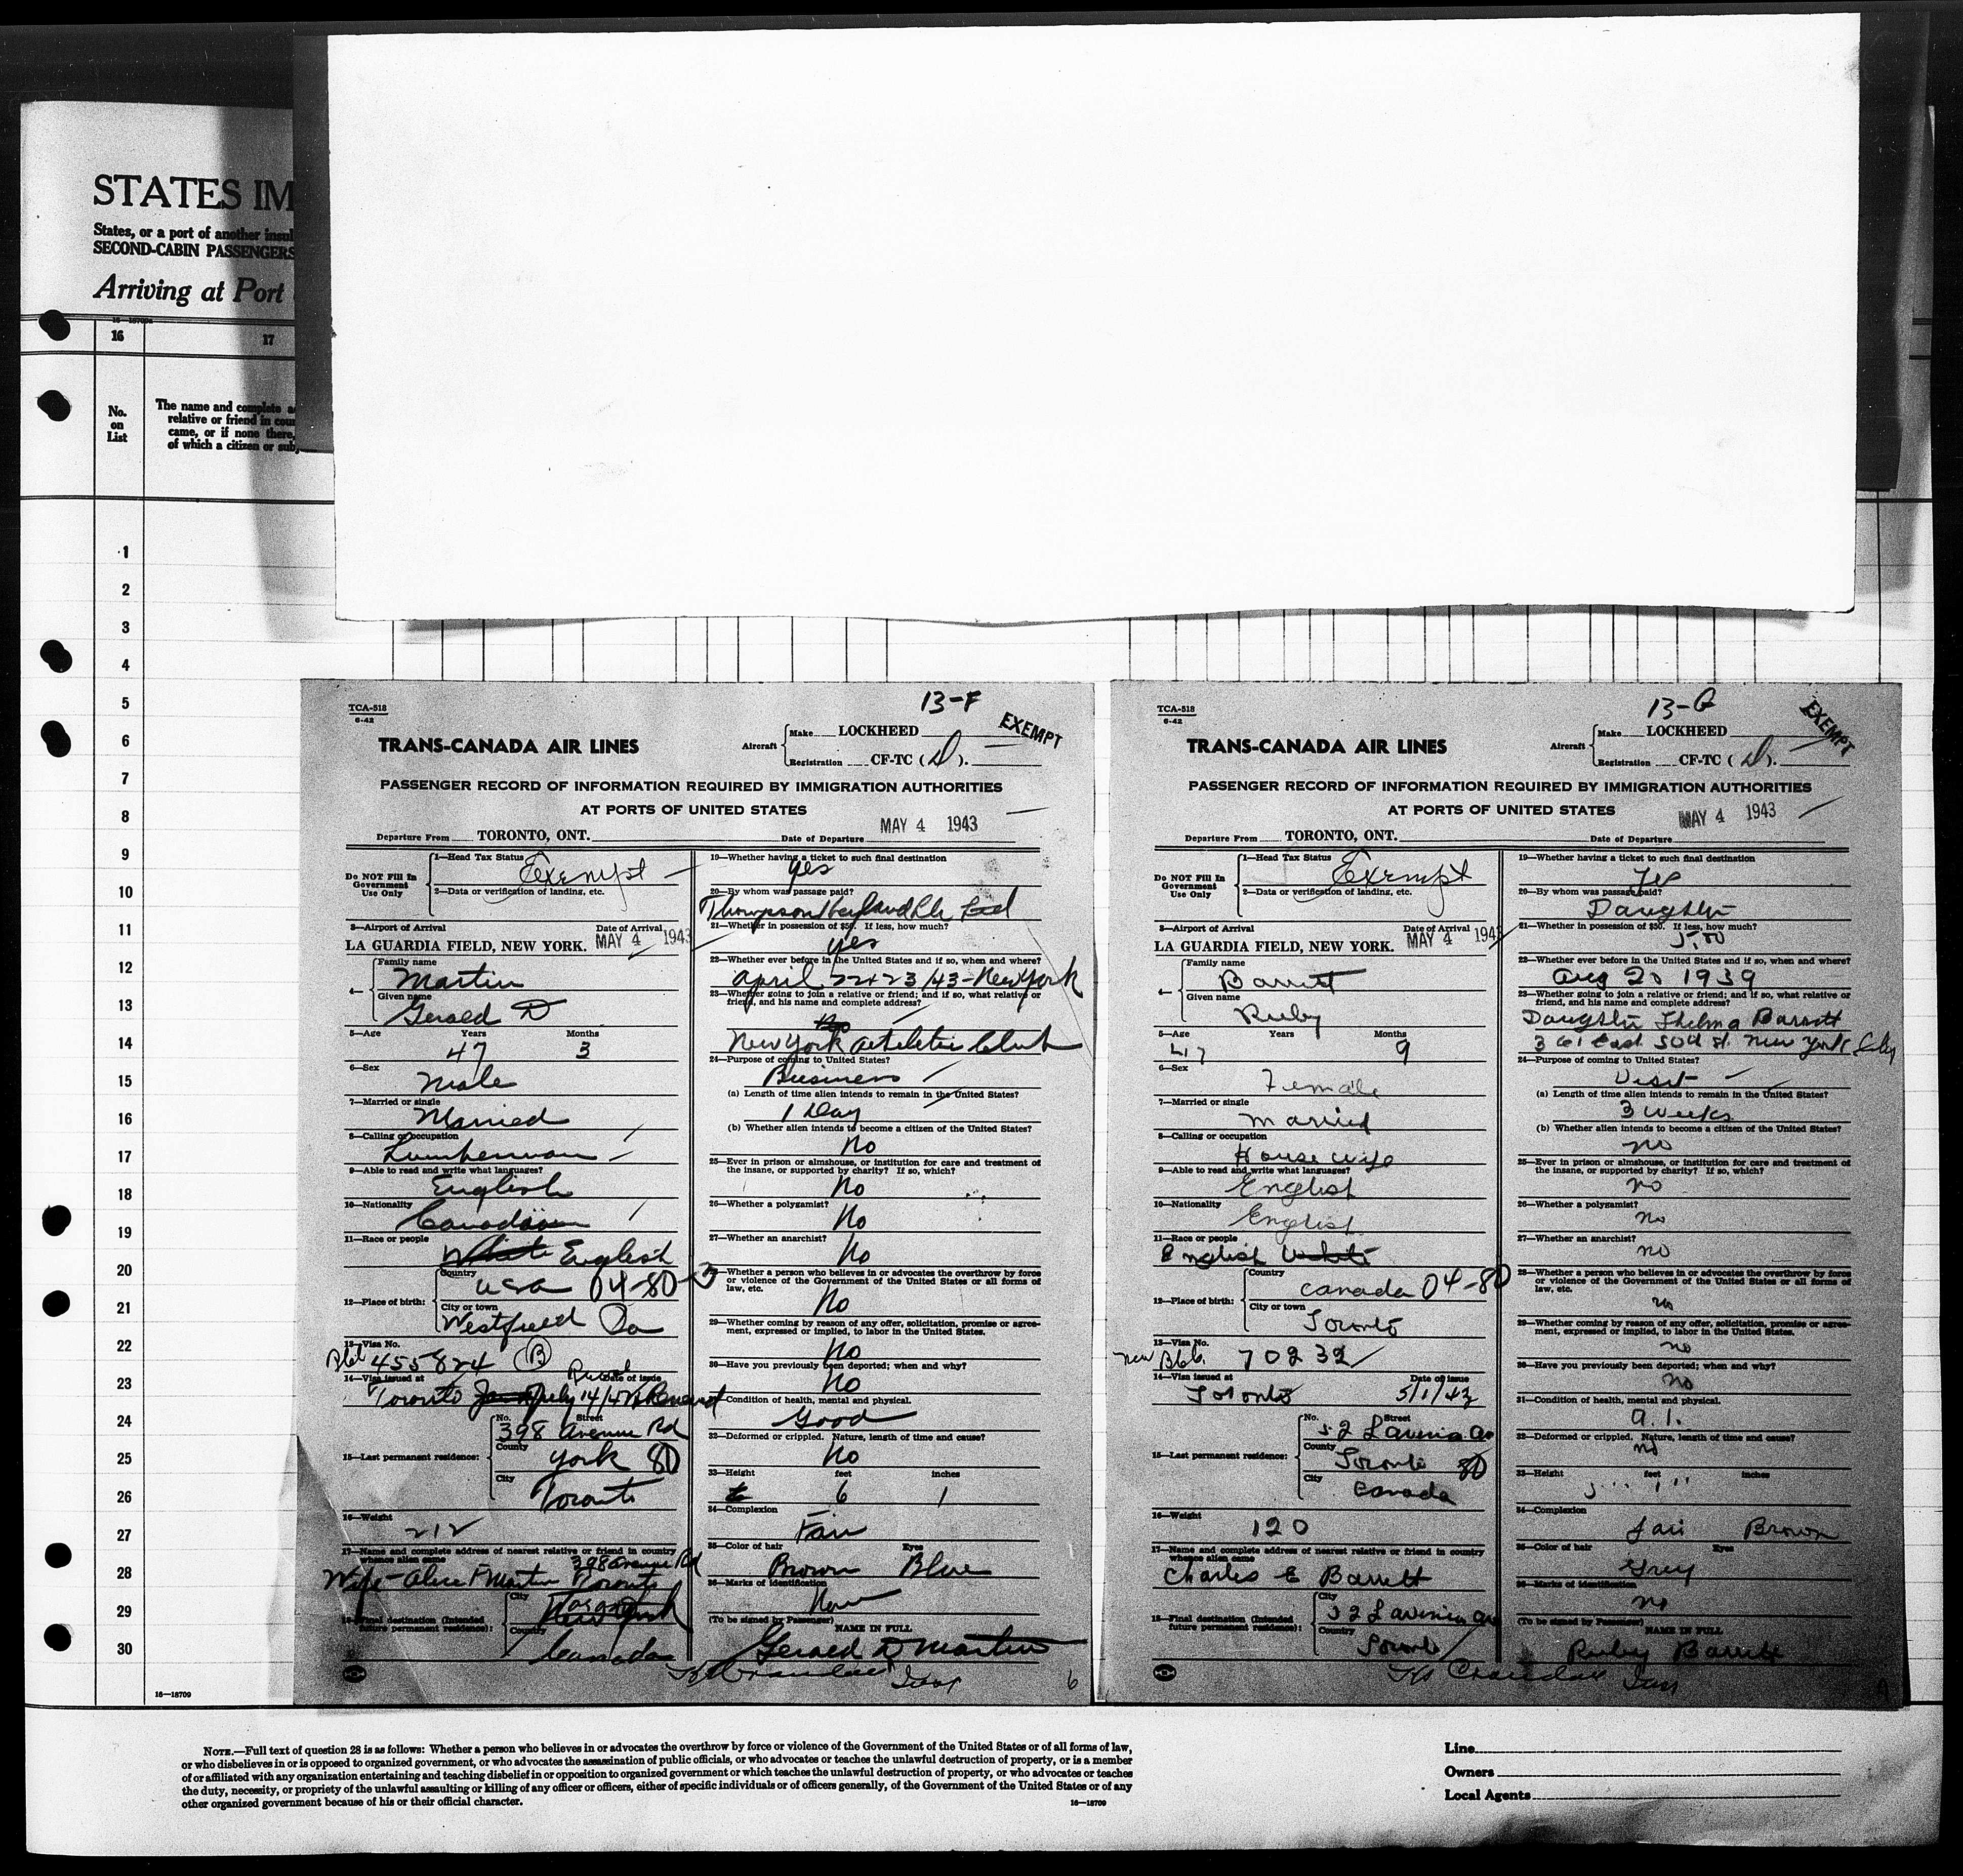 STATES IM
States, or a port of another insul
SECOND-CABIN PASSENGERS
Arriving at Port
16
17
No.
on
List
The name and complete a
relative or friend in cou
came, or if none there,
of which a citizen or sub
1
2
3
4
5
6
7
8
9
10
11
12
13
14
15
16
17
18
19
20
21
22
23
24
25
26
27
28
29
30
16—18709
TCA-518
6-42
13-F
EXEMPT
TRANS-CANADA AIR LINES
Aircraft
Make LOCKHEED
Registration CF-TC (D).
PASSENGER RECORD OF INFORMATION REQUIRED BY IMMIGRATION AUTHORITIES
AT PORTS OF UNITED STATES
Departure From TORONTO, ONT. Date of Departure MAY 4 1943
Do NOT Fill In
Government
Use Only
1—Head Tax Status
Exempt
2—Data or verification of landing, etc.
3—Airport of Arrival Date of Arrival
LA GUARDIA FIELD, NEW YORK. MAY 4 1943
4—
Family name
Martin
Given name
Gerald D
5—Age Years Months
47 3
6—Sex
Male
7—Married or single
Married
8—Calling or occupation
Lumberman
9—Able to read and write what languages?
English
10—Nationality
Canadian
11—Race or people
White English
12—Place of birth:
Country
USA 04-80-3
City or town
Westfield Pa
13—Visa No.
455824 (B)
14—Visa issued at Date of issue
Toronto July 14/42
15—Last permanent residence:
No. Street
398 Avenue Rd
County
York 80
City
Toronto
16—Weight
212
17—Name and complete address of nearest relative or friend in country
whence alien came
398 Avenue Rd
Wife - Alice F Martin Toronto
18—Final destination (Intended
future permanent residence):
City
Toronto
New York
Country
Canada
19—Whether having a ticket to such final destination
yes
20—By whom was passage paid?
Ltd
21—Whether in possession of $50. If less, how much?
yes
22—Whether ever before in the United States and if so, when and where?
April 22+23/43 - New York
23—Whether going to join a relative or friend; and if so, what relative or
friend, and his name and complete address?
No
New York Athletic Club
24—Purpose of coming to United States?
Business
(a) Length of time alien intends to remain in the United States?
1 Day
(b) Whether alien intends to become a citizen of the United States?
No
25—Ever in prison or almshouse, or institution for care and treatment of
the insane, or supported by charity? If so, which?
No
26—Whether a polygamist?
No
27—Whether an anarchist?
No
28—Whether a person who believes in or advocates the overthrow by force
or violence of the Government of the United States or all forms of
law, etc.
No
29—Whether coming by reason of any offer, solicitation, promise or agree-
ment, expressed or implied, to labor in the United States.
No
30—Have you previously been deported; when and why?
No
31—Condition of health, mental and physical.
Good
32—Deformed or crippled. Nature, length of time and cause?
No
33—Height feet inches
6 1
34—Complexion
Fair
35—Color of hair Eyes
Brown Blue
36—Marks of identification
None
(To be signed by Passenger) NAME IN FULL
Gerald D Martin
6
TCA-518
6-42
13-G
EXEMPT
TRANS-CANADA AIR LINES
Aircraft
Make LOCKHEED
Registration CF-TC (D).
PASSENGER RECORD OF INFORMATION REQUIRED BY IMMIGRATION AUTHORITIES
AT PORTS OF UNITED STATES
Departure From TORONTO, ONT. Date of Departure MAY 4 1943
Do NOT Fill In
Government
Use Only
1—Head Tax Status
Exempt
2—Data or verification of landing, etc.
3—Airport of Arrival Date of Arrival
LA GUARDIA FIELD, NEW YORK. MAY 4 1943
4—
Family name
Barrett
Given name
Ruby
5—Age Years Months
47 9
6—Sex
Female
7—Married or single
married
8—Calling or occupation
House wife
9—Able to read and write what languages?
English
10—Nationality
English
11—Race or people
English White
12—Place of birth:
Country
Canada 04-80
City or town
Toronto
13—Visa No.
new 70232
14—Visa issued at Date of issue
Toronto 5/1/43
15—Last permanent residence:
No. Street
52 Lavinia Av
County
Toronto 80
City
Canada
16—Weight
120
17—Name and complete address of nearest relative or friend in country
whence alien came
Charles E Barrett
18—Final destination (Intended
future permanent residence):
City
52 Lavinia Av
Country
Toronto
19—Whether having a ticket to such final destination
Yes
20—By whom was passage paid?
Daughter
21—Whether in possession of $50. If less, how much?
5.00
22—Whether ever before in the United States and if so, when and where?
Aug 20 1939
23—Whether going to join a relative or friend; and if so, what relative or
friend, and his name and complete address?
Daughter Thelma Barrett
361 East 50th St. New York City
24—Purpose of coming to United States?
Visit
(a) Length of time alien intends to remain in the United States?
3 weeks
(b) Whether alien intends to become a citizen of the United States?
no
25—Ever in prison or almshouse, or institution for care and treatment of
the insane, or supported by charity? If so, which?
no
26—Whether a polygamist?
no
27—Whether an anarchist?
no
28—Whether a person who believes in or advocates the overthrow by force
or violence of the Government of the United States or all forms of
law, etc.
no
29—Whether coming by reason of any offer, solicitation, promise or agree-
ment, expressed or implied, to labor in the United States.
no
30—Have you previously been deported; when and why?
no
31—Condition of health, mental and physical.
A.1.
32—Deformed or crippled. Nature, length of time and cause?
no
33—Height feet inches
5 1
34—Complexion
fair Brown
35—Color of hair Eyes
Grey
36—Marks of identification
no
(To be signed by Passenger) NAME IN FULL
Ruby Barrett
NOTE.—Full text of question 28 is as follows: Whether a person who believes in or advocates the overthrow by force or violence of the Government of the United States or of all forms of law,
or who disbelieves in or is opposed to organized government, or who advocates the assassination of public officials, or who advocates or teaches the unlawful destruction of property, or is a member
of or affiliated with any organization entertaining and teaching disbelief in or opposition to organized government or which teaches the unlawful destruction of property, or who advocates or teaches
the duty, necessity, or propriety of the unlawful assaulting or killing of any officer or officers, either of specific individuals or of officers generally, of the Government of the United States or of any
other organized government because of his or their official character.
16—18709
Line
Owners
Local Agents